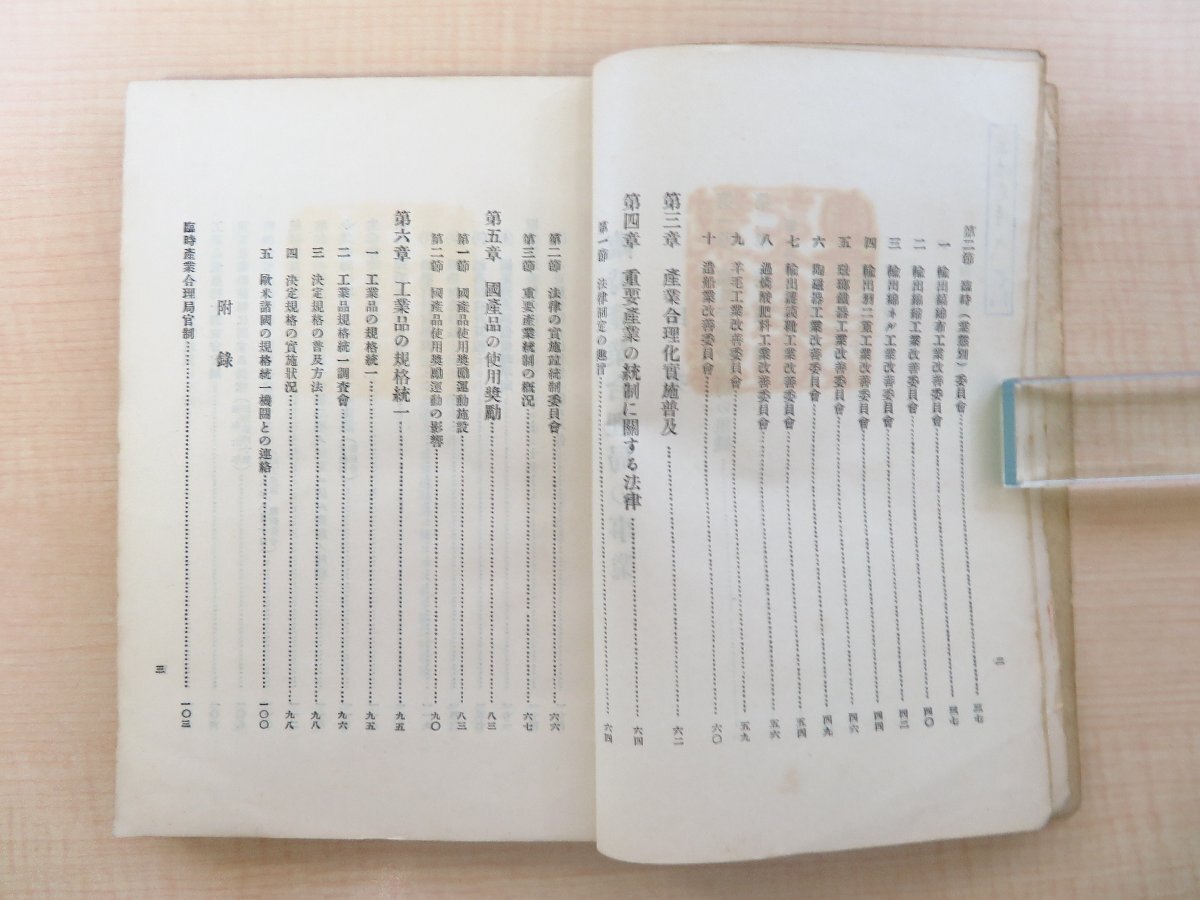 第二節 臨時(業態別)委員會……三七
一 輸出綿布工業改善委員會……三七
二 輸出綿縮工業改善委員會……四〇
三 輸出綿ネル工業改善委員會……四二
四 輸出羽二重工業改善委員會……四四
五 琺瑯鐵器工業改善委員會……四六
六 陶磁器工業改善委員會……四九
七 輸出護謨靴工業改善委員會……五四
八 過燐酸肥料工業改善委員會……五六
九 羊毛工業改善委員會……五九
十 造船業改善委員會……六〇
第三章 產業合理化實施普及……六二
第四章 重要產業の統制に關する法律……六四
第一節 法律制定の趣旨……六四
二
第二節 法律の實施竝統制委員會……六六
第三節 重要產業統制の概況……六七
第五章 國產品の使用奬勵……八三
第一節 國產品使用奬勵運動施設……八三
第二節 國產品使用奬勵運動の影響……九〇
第六章 工業品の規格統一……九五
一 工業品の規格統一……九五
二 工業品規格統一調査會……九六
三 決定規格の普及方法……九八
四 決定規格の實施狀況……九八
五 歐米諸國の規格統一機關との連絡……一〇〇
附錄
臨時產業合理局官制……一〇三
三